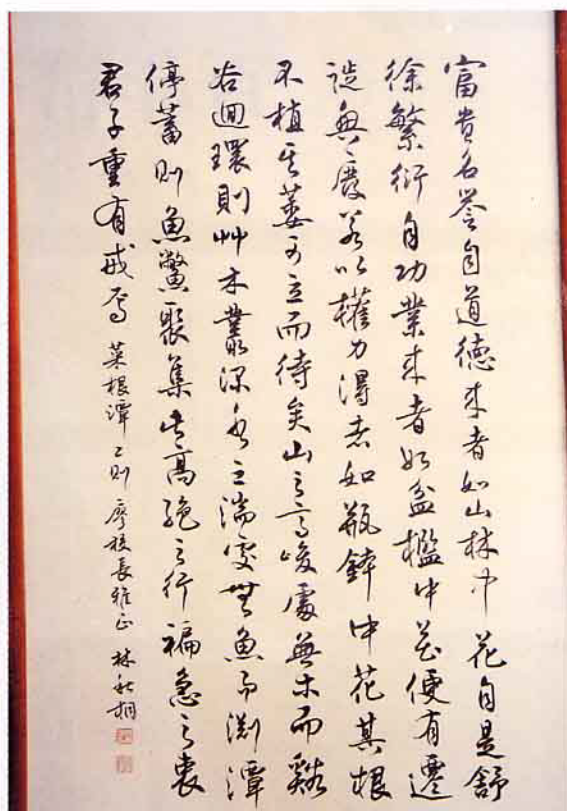 富貴名譽自道德來者如山林中花自是舒
徐繁衍自功業來者如盆檻中花便有遷
徙興廢若以權力得者如瓶鉢中花其根
不植其萎可立而待矣山之高峻處無木而谿
谷迴環則艸木叢深水之湍處無魚而渊潭
停蓄則魚鱉聚集此高絕之行褊急之衷
君子重有戒焉 菜根潭二則 廖校長雅正 林